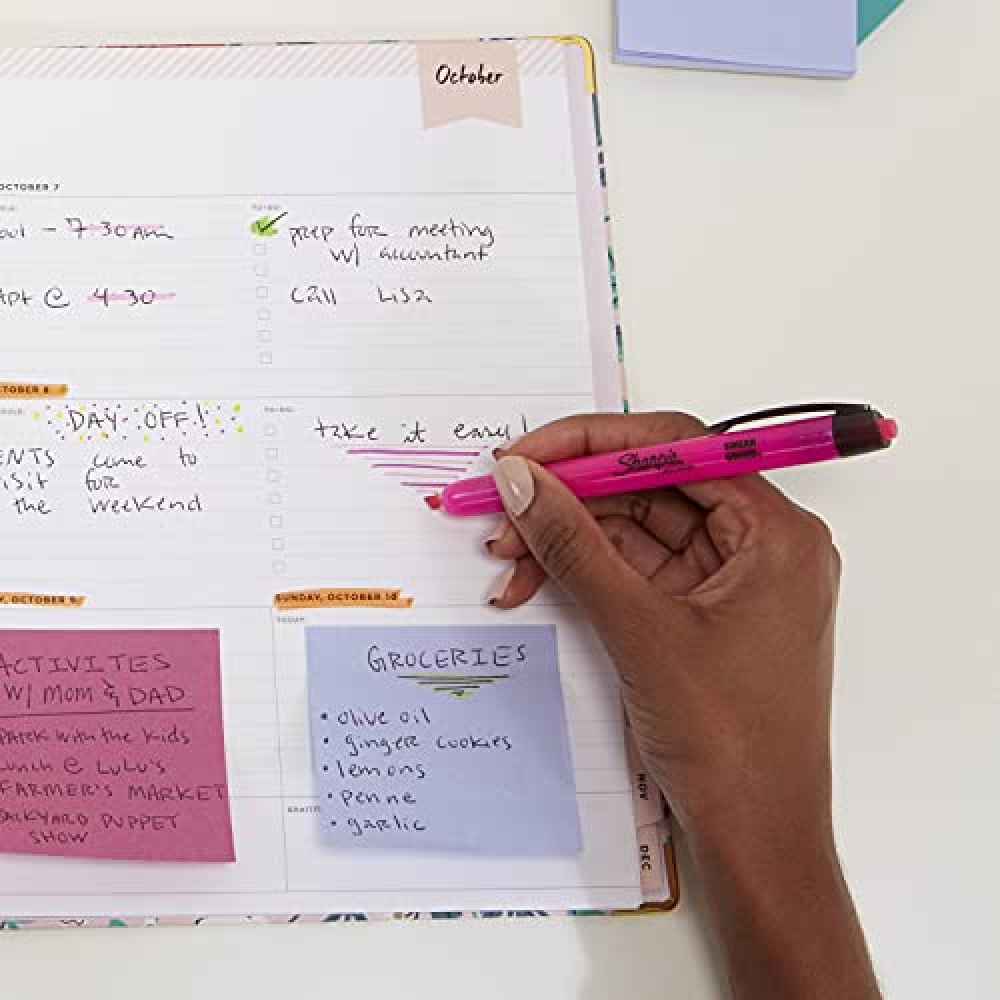 October
OCTOBER 7
7:30 Am
TO DO:
prep for meeting
w/ accountant
@ 4:30
Call Lisa
TOBER 8
DAY OFF!
TO DO:
take it easy!
ENTS come to
isit for
the weekend
Sharpie
SMEAR
GUARD
Y, OCTOBER 9
SUNDAY, OCTOBER 10
TODAY:
ACTIVITES
W/ Mom & DAD
PARK with the kids
Lunch @ LuLu's
FARMER'S MARKET
BACKYARD PUPPET
SHOW
GROCERIES
• olive oil
• ginger cookies
• lemons
• penne
• garlic
NOV
DEC